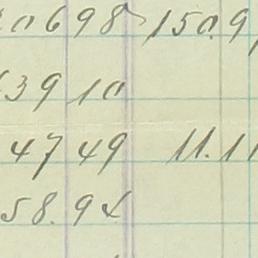 20698 150.9
39 10
47 49 11.11
58.94